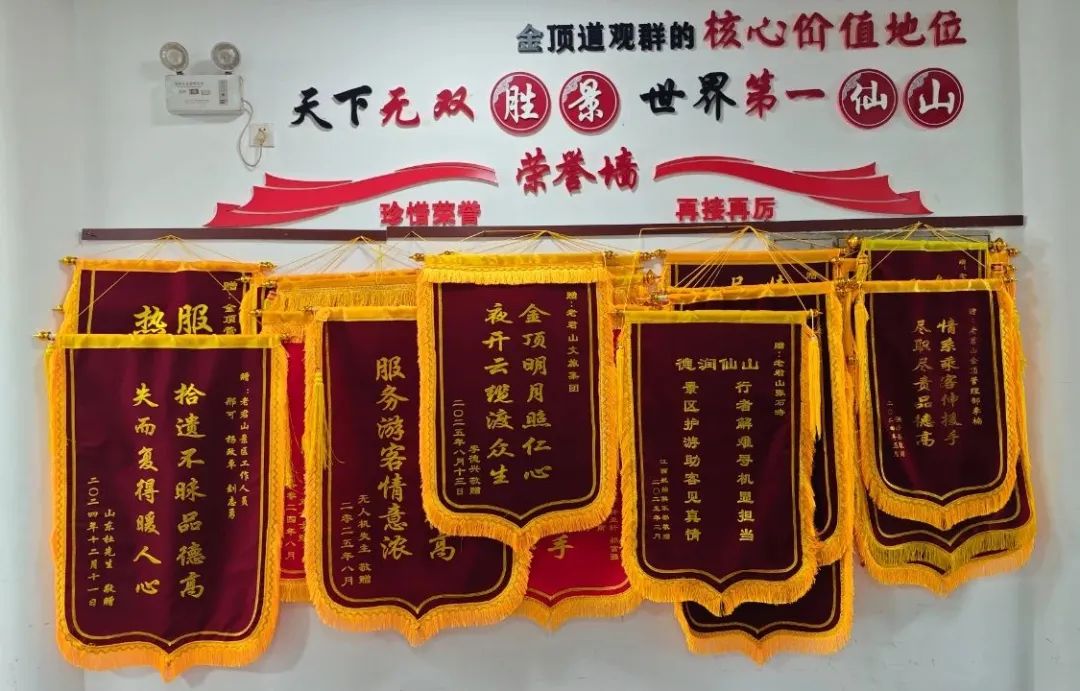 金顶道观群的核心价值地位
天下无双胜景 世界第一仙山
荣誉墙
珍惜荣誉
再接再厉
赠：金顶
服
热
赠：老君山景区工作人员
郑可 杨改革 刘志勇
拾遗不昧品德高
失而复得暖人心
山东杜先生 敬赠
二〇二四年十二月十一日
二四年八月
服务游客情意浓
无人机失主 敬赠
二零二五年八月
高
赠：老君山文旅集团
金顶明月照仁心
夜开云缆渡众生
李德兴敬赠
二〇二五年八月十三日
手
赠：老君山
德润仙山
行者解难寻机显担当
景区护游助客见真情
二〇二五年二月
赠：老君山金顶管理部李楠
情系乘客伸援手
尽职尽责品德高